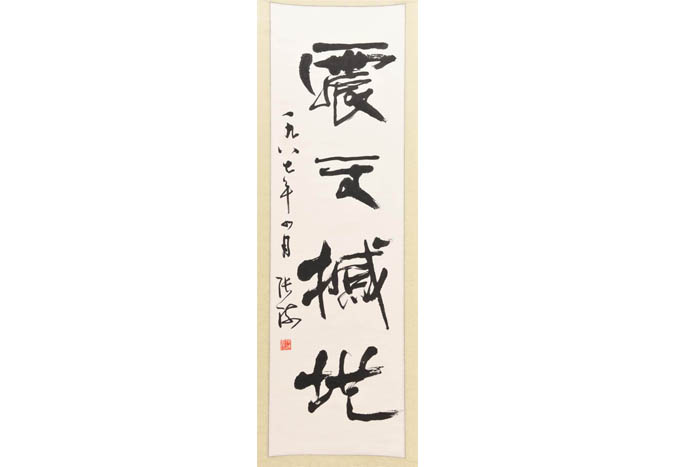 震天撼地
一九八七年四月 张海